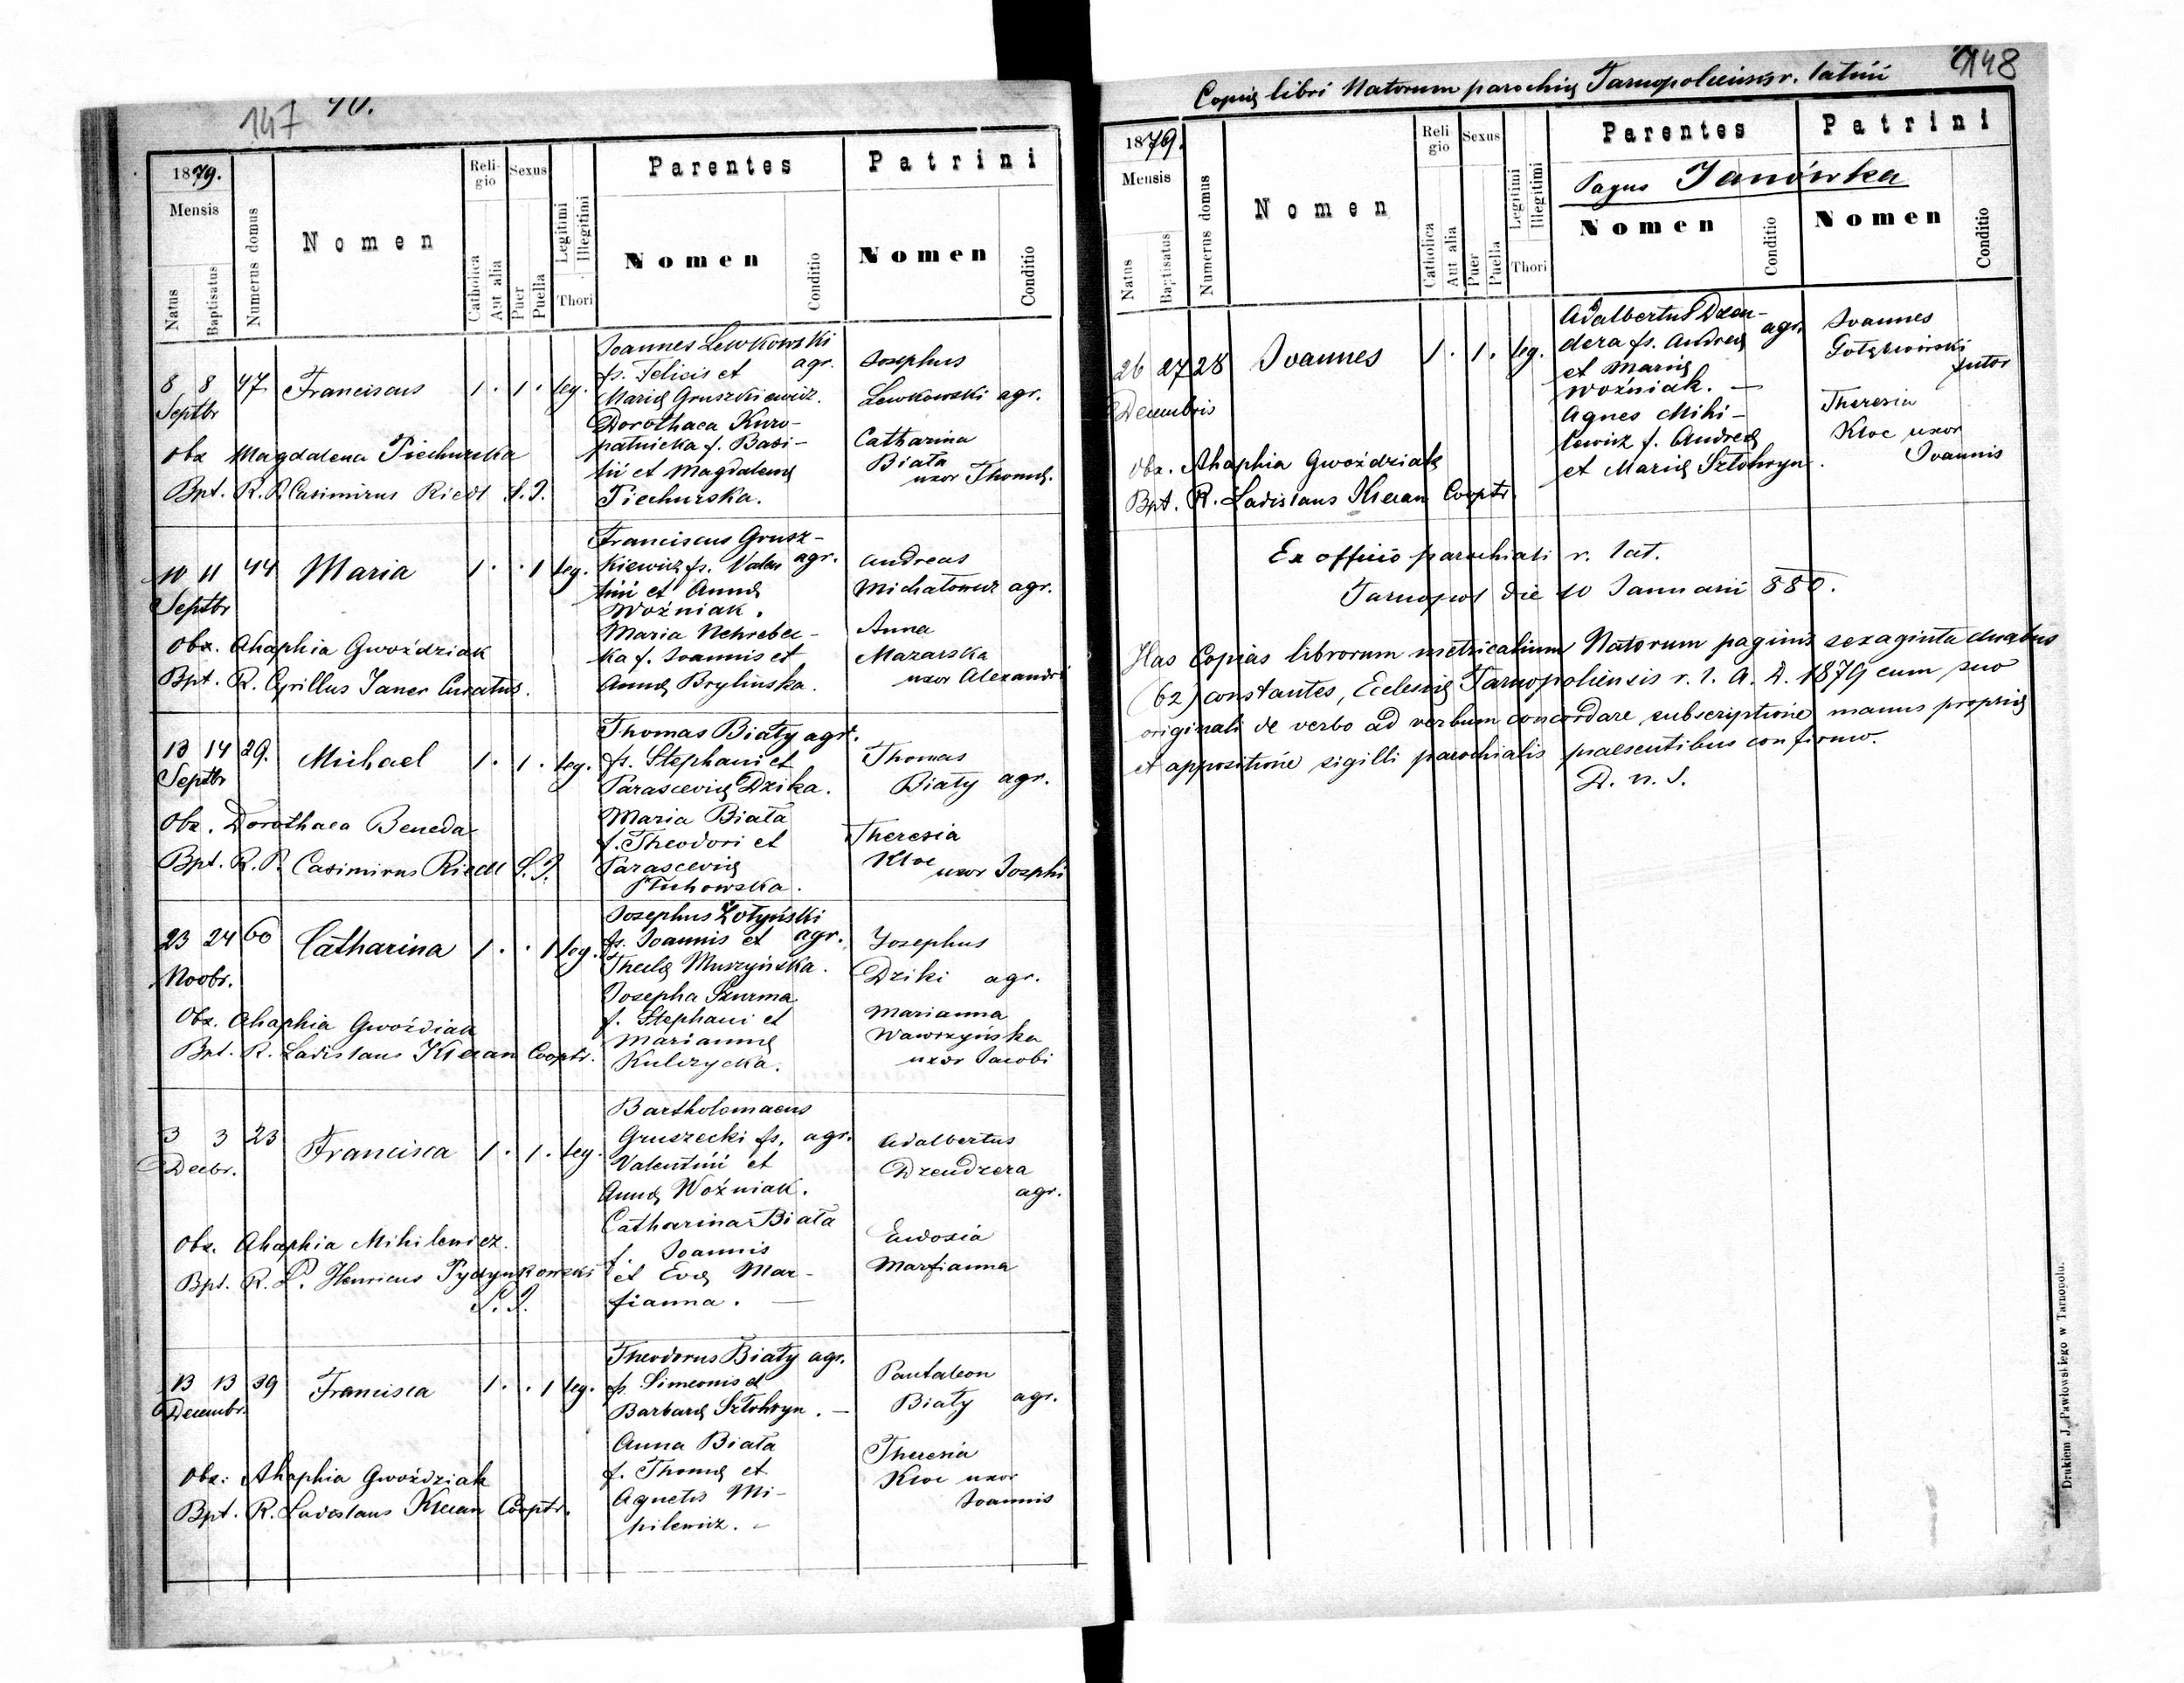 147
1879.
Mensis
Natus
Baptisatus
Numerus domus
Nomen
Religio
Catholica
Aut alia
Sexus
Puer
Puella
Legitimi
Illegitimi
Thori
Parentes
Nomen
Conditio
Patrini
Nomen
Conditio
8 8 47 Franciscus 1 . 1 . leg.
Septbr
Obx Magdalena Piechurska
Bpt. R. P. Casimirus Riedl S. J.
Joannes Lewkowski
fs. Felicis et agr.
Marię Gruszkiewicz.
Dorothaea Kuro-
patnicka f. Basi-
lii et Magdalenę
Piechurska.
Josephus
Lewkowski agr.
Catharina
Biała
uxor Thomę.
10 11 44 Maria 1 . . 1 leg.
Septbr
Obx. Ahaphia Gwoździak
Bpt. R. Cyrillus Janer Curatus.
Franciscus Grusz-
kiewicz fs. Valen agr.
tini et Annę
Woźniak.
Maria Nehrebec-
ka f. Joannis et
Annę Brylinska.
Andreas
Michałowicz agr.
Anna
Mazarska
uxor Alexandri
13 14 29. Michael 1 . 1 . leg.
Septbr
Obx. Dorothaea Beneda
Bpt. R. P. Casimirus Riedl S. J.
Thomas Biały agr.
fs. Stephani et
Parascevię Dzika.
Maria Biała
f. Theodori et
Parascevię
Tuhowska.
Thomas
Biały agr.
Theresia
Kloc
uxor Josephi
23 24 60 Catharina 1 . . 1 leg.
Novbr.
Obx. Ahaphia Gwoździak
Bpt. R. Ladislaus Kieran Cooptr.
Josephus Żołyński
fs. Joannis et agr.
Theclę Muszyńska.
Josepha Szurma
f. Stephani et
Mariannę
Kulczycka.
Josephus
Dziki agr.
Marianna
Wawrzyńska
uxor Jacobi
3 3 23 Francisca 1 . 1 . leg.
Decbr.
Obx. Ahaphia Mihilewicz.
Bpt. R. P. Henricus Pydynkowski
S. J.
Bartholomaeus
Gruszecki fs. agr.
Valentini et
Annę Woźniak.
Catharina Biała
f. Joannis
et Evę Mar-
fianna. —
Adalbertus
Dzendzera
agr.
Eudosia
Marfianna
13 13 39 Francisca 1 . . 1 leg.
Decembr.
Obx: Ahaphia Gwoździak
Bpt. R. Ladislaus Kieran Cooptr.
Theodorus Biały agr.
fs. Simeonis et
Barbarę Sztohryn. —
Anna Biała
f. Thomę et
Agnetis Mi-
hilewicz. —
Pantaleon
Biały agr.
Theresia
Kloc uxor
Joannis
148
Copię libri Natorum parochię Tarnopoliensis r. latini
1879.
Mensis
Natus
Baptisatus
Numerus domus
Nomen
Religio
Catholica
Aut alia
Sexus
Puer
Puella
Legitimi
Illegitimi
Thori
Parentes
Patrini
Pagus Janówka
Nomen
Conditio
Nomen
Conditio
26 27 28 Joannes 1 . 1 . leg.
Decembris
Obx. Ahaphia Gwoździak
Bpt. R. Ladislaus Kieran Cooptr.
Adalbertus Dzen-
dera fs. Andreę agr.
et Marię
Woźniak. —
Agnes Mihi-
lewicz f. Andreę
et Marię Sztohryn.
Joannes
Gołębiowski
sutor
Theresia
Kloc uxor
Joannis
Ex officio parochiali r. lat.
Tarnopol die 10 Januarii 880.
Has Copias librorum metricalium Natorum paginis sexaginta duabus
(62) constantes, Ecclesię Tarnopoliensis r. l. a. A. 1879 cum suo
originali de verbo ad verbum concordare subscriptione manus proprię
et appositione sigilli parochialis praesentibus confirmo.
D. n. S.
Drukiem J. Pawłowskiego w Tarnopolu.